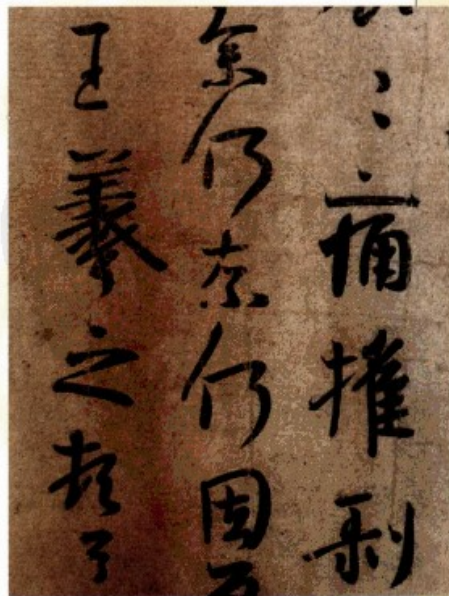 〻痛摧剥
奈何奈何因
王羲之頓首